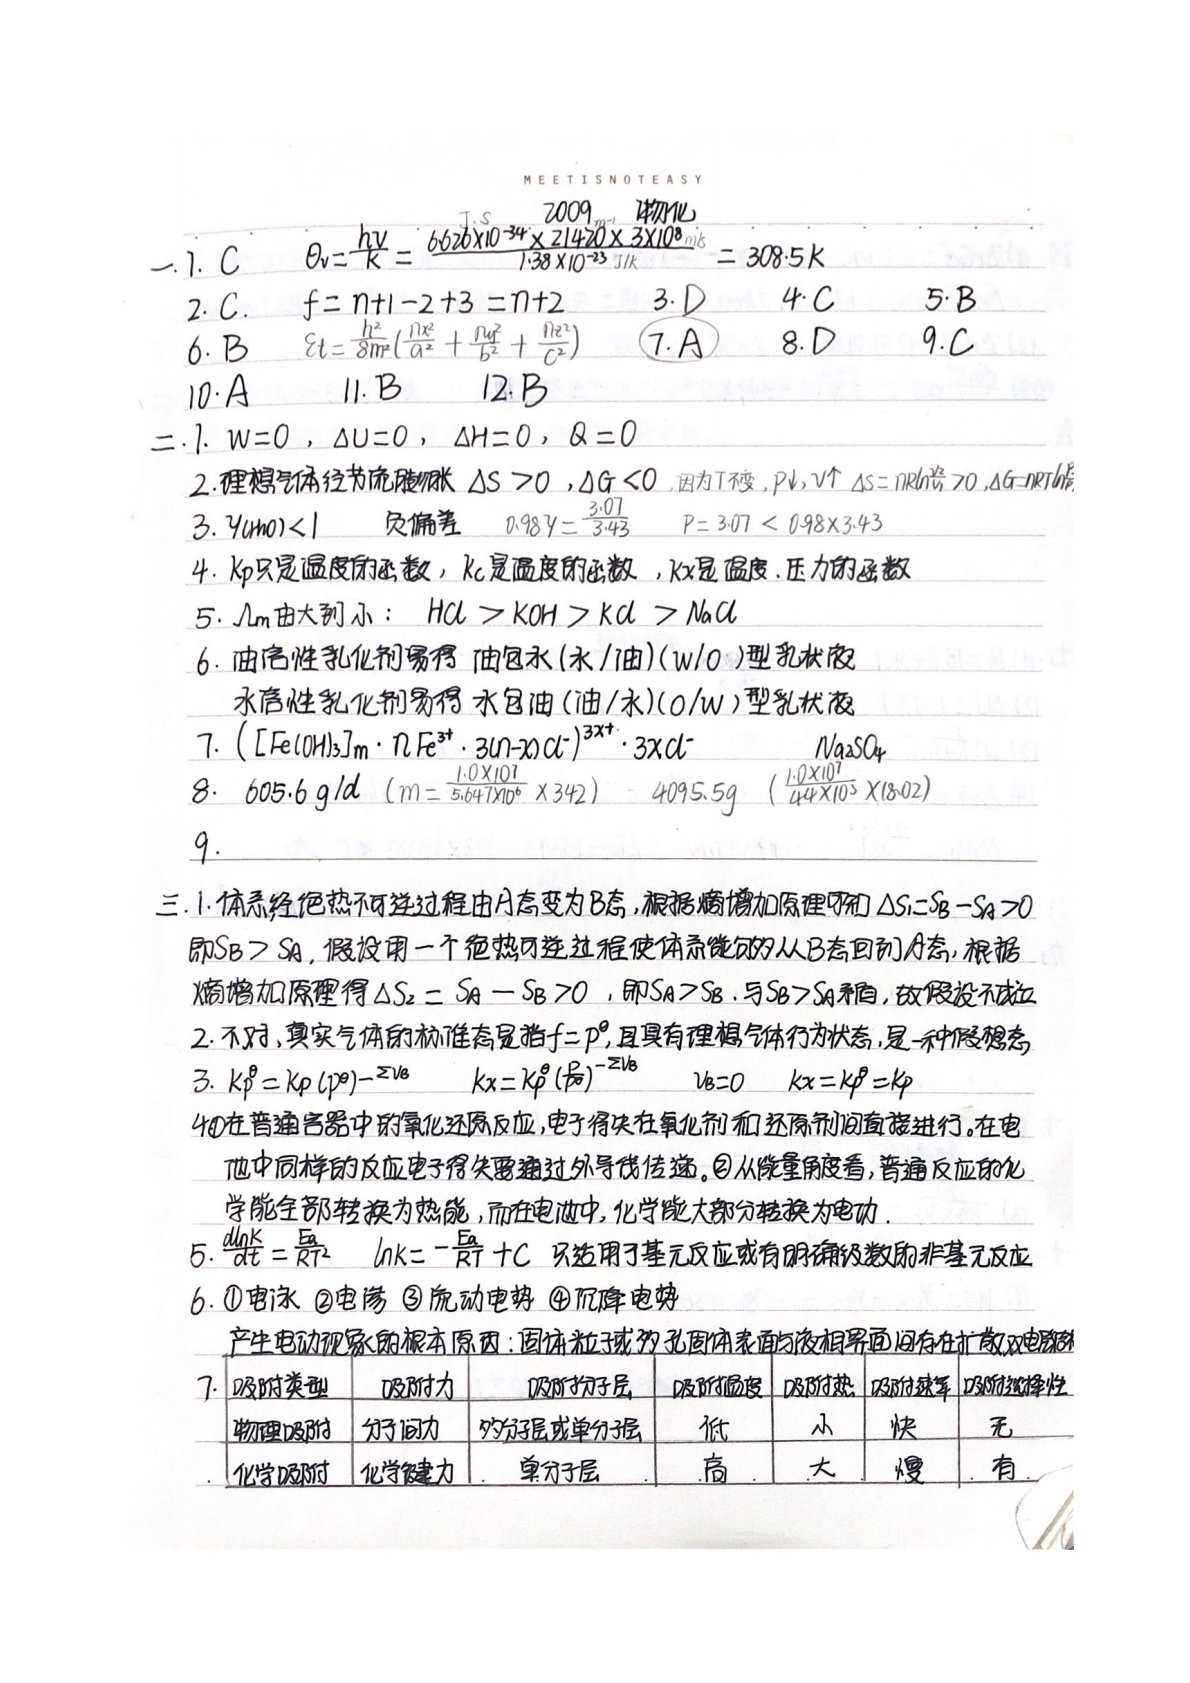 MEETISNOTEASY
2009 物化
一.1. C θv = hν/k = 6.626×10⁻³⁴ J·s × 21420 m⁻¹ × 3×10⁸ m/s / 1.38×10⁻²³ J/K = 308.5K
2. C. f = n+1-2+3 = n+2 3. D 4. C 5. B
6. B εt = h²/8m(nx²/a² + ny²/b² + nz²/c²) 7. A 8. D 9. C
10. A 11. B 12. B
二.1. W=0, ΔU=0, ΔH=0, Q=0
2. 理想气体经节流膨胀 ΔS>0, ΔG<0 因为T不变, P↓, V↑ ΔS=nRln >0, ΔG=nRTln
3. γ(H₂O)<1 负偏差 0.98γ = 3.07/3.43 P=3.07 < 0.98×3.43
4. Kp只是温度的函数, Kc是温度的函数, Kx是温度.压力的函数
5. Λm由大到小: HCl > KOH > KCl > NaCl
6. 油溶性乳化剂易得 油包水(水/油)(W/O)型乳状液
水溶性乳化剂易得 水包油(油/水)(O/W)型乳状液
7. ([Fe(OH)₃]m · nFe³⁺ · 3(n-x)Cl⁻)³ˣ⁺ · 3xCl⁻ Na₂SO₄
8. 605.6 g/d (m = 1.0×10⁷/5.647×10⁶ × 342) 4095.5g (1.0×10⁷/44×10³ × 18.02)
9.
三.1. 体系经绝热不可逆过程由A态变为B态,根据熵增加原理可知 ΔS₁=SB-SA>0
即SB>SA. 假设用一个绝热可逆过程使体系能够从B态回到A态,根据
熵增加原理得 ΔS₂ = SA-SB>0, 即SA>SB. 与SB>SA矛盾, 故假设不成立
2. 不对, 真实气体的标准态是指f=p^θ, 且具有理想气体行为状态, 是一种假想态
3. Kp^θ = Kp(p^θ)^-ΣνB Kx = Kp^θ(P/p^θ)^-ΣνB νB=0 Kx = Kp^θ = Kp
4.①在普通容器中的氧化还原反应,电子得失在氧化剂和还原剂间直接进行。在电
池中同样的反应电子得失要通过外导线传递。②从能量角度看,普通反应的化
学能全部转换为热能,而在电池中,化学能大部分转换为电功.
5. dlnK/dt = Ea/RT² lnK = -Ea/RT + C 只适用于基元反应或有明确级数的非基元反应
6. ①电泳 ②电渗 ③流动电势 ④沉降电势
产生电动现象的根本原因:固体粒子或多孔固体表面与液相界面间存在扩散双电层结构
7. 吸附类型 吸附力 吸附分子层 吸附温度 吸附热 吸附速率 吸附选择性
物理吸附 分子间力 多分子层或单分子层 低 小 快 无
化学吸附 化学键力 单分子层 高 大 慢 有